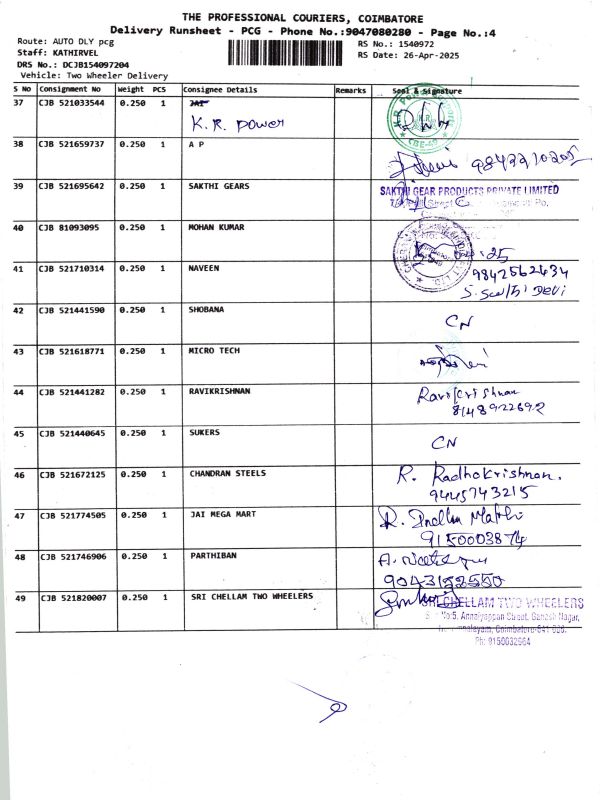 THE PROFESSIONAL COURIERS, COIMBATORE
Delivery Runsheet - PCG - Phone No.:9047080280 - Page No.:4
Route: AUTO DLY pcg
RS No.: 1540972
Staff: KATHIRVEL
RS Date: 26-Apr-2025
DRS No.: DCJB154097204
Vehicle: Two Wheeler Delivery
S No Consignment No Weight PCS Consignee Details Remarks Seal & Signature
37 CJB 521033544 0.250 1 JAI
K.R. power
38 CJB 521659737 0.250 1 A P
39 CJB 521695642 0.250 1 SAKTHI GEARS SAKTHI GEAR PRODUCTS PRIVATE LIMITED
40 CJB 81093095 0.250 1 MOHAN KUMAR
41 CJB 521710314 0.250 1 NAVEEN 9842562434
42 CJB 521441590 0.250 1 SHOBANA CN
43 CJB 521618771 0.250 1 MICRO TECH
44 CJB 521441282 0.250 1 RAVIKRISHNAN Ravikrishnan
8148922692
45 CJB 521440645 0.250 1 SUKERS CN
46 CJB 521672125 0.250 1 CHANDRAN STEELS R. Radhakrishnan.
9445743215
47 CJB 521774505 0.250 1 JAI MEGA MART
9150003874
48 CJB 521746906 0.250 1 PARTHIBAN
9043152550
49 CJB 521820007 0.250 1 SRI CHELLAM TWO WHEELERS SRI CHELLAM TWO WHEELERS
No:5, Annaiyappan Street, Ganesh Nagar,
Coimbatore-641
Ph: 9150032664